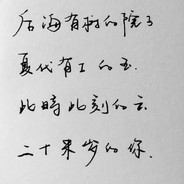 后海有树的院子
夏代有工的玉
此時此刻的云
二十来岁的你.